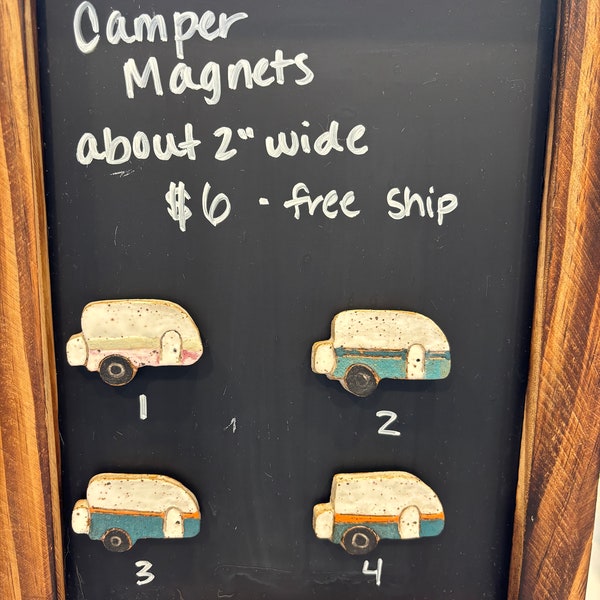 Camper
Magnets
about 2" wide
$6 - free ship
1
2
3
4